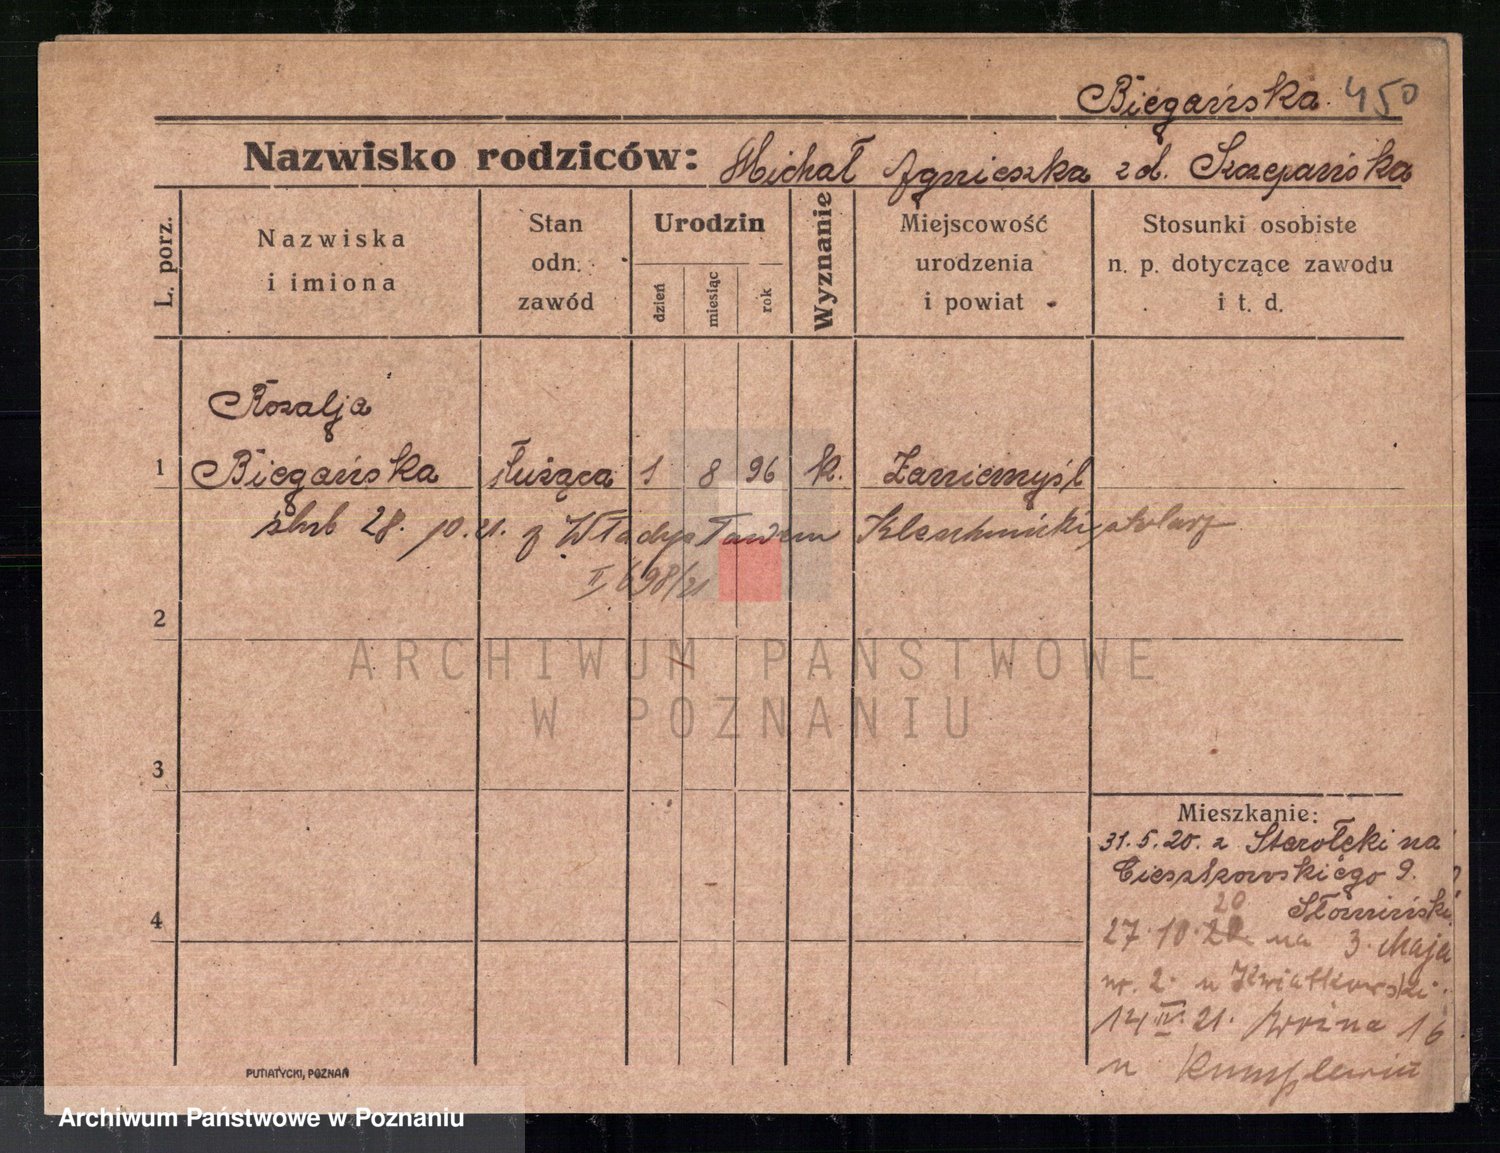 Biegańska. 450
Nazwisko rodziców: Michał Agnieszka zd. Szczepańska
L. porz.
Nazwiska
i imiona
Stan
odn.
zawód
Urodzin
dzień
miesiąc
rok
Wyznanie
Miejscowość
urodzenia
i powiat
Stosunki osobiste
n. p. dotyczące zawodu
i t. d.
Rozalja
1 Biegańska służąca 1 8 96 k. Zaniemyśl
ślub 28. 10. 21. z Władysławem stolarz
II 698/21
2
ARCHIWUM PAŃSTWOWE
W POZNANIU
3
Mieszkanie:
31. 5. 20. z Starołęki na
Cieszkowskiego 9.
Słomiński
4
20
27. 10. na 3. Maja
nr. 2. u Kwiatkowski.
14 IV. 21. Woźna 16
u
PUTIATYCKI, POZNAŃ
Archiwum Państwowe w Poznaniu